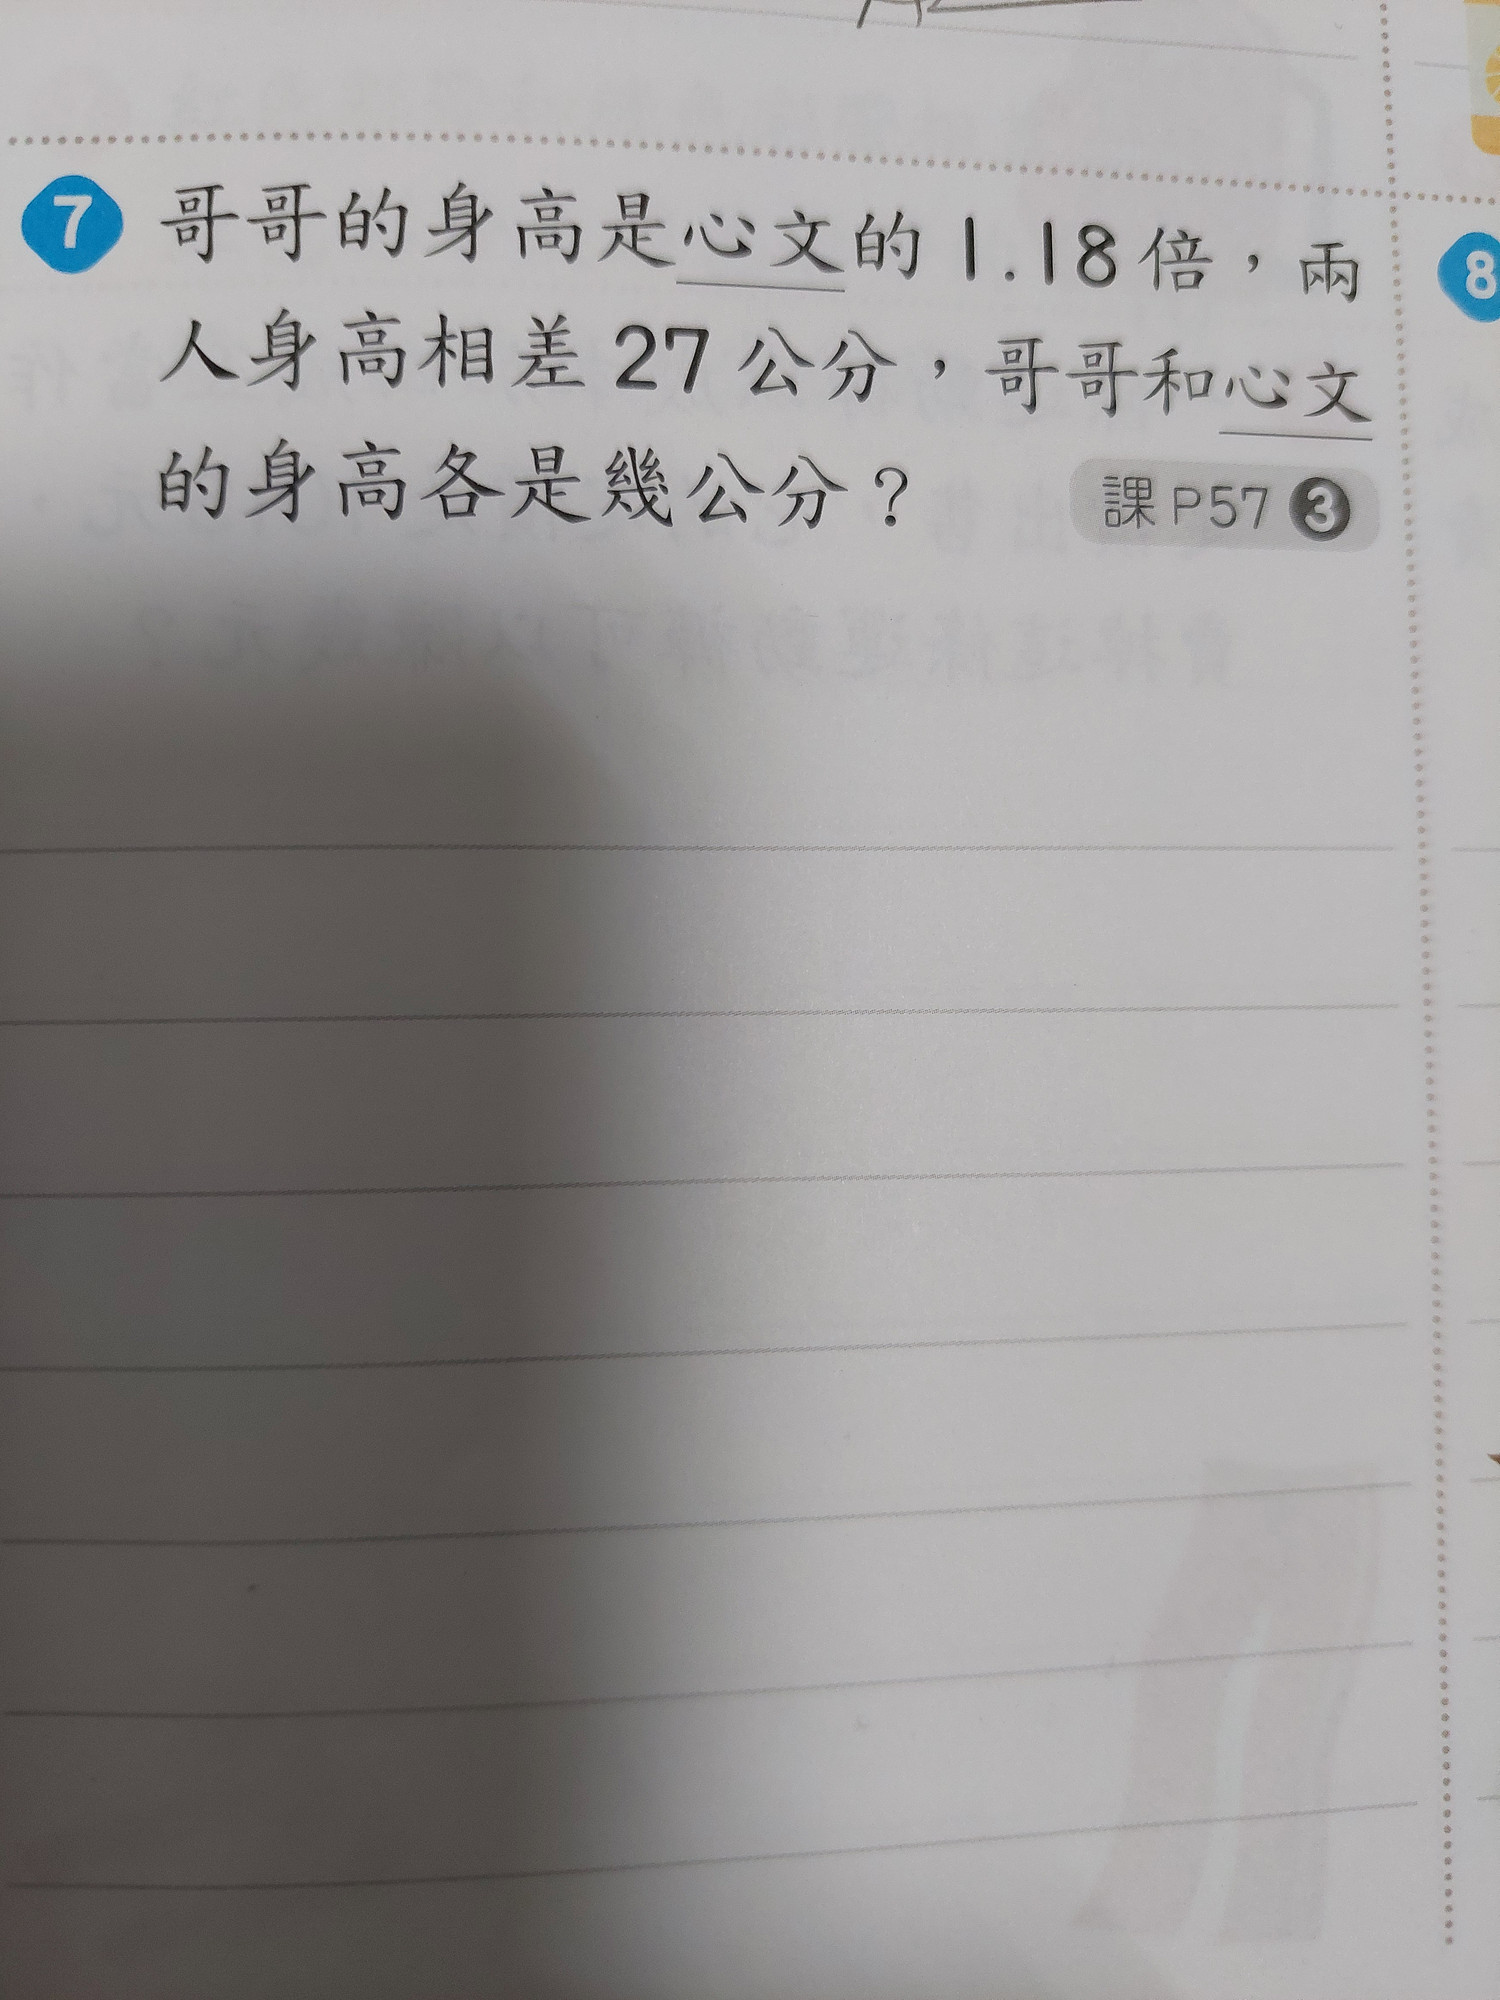 7 哥哥的身高是心文的1.18倍，兩
人身高相差27公分，哥哥和心文
的身高各是幾公分？ 課P57 3
8